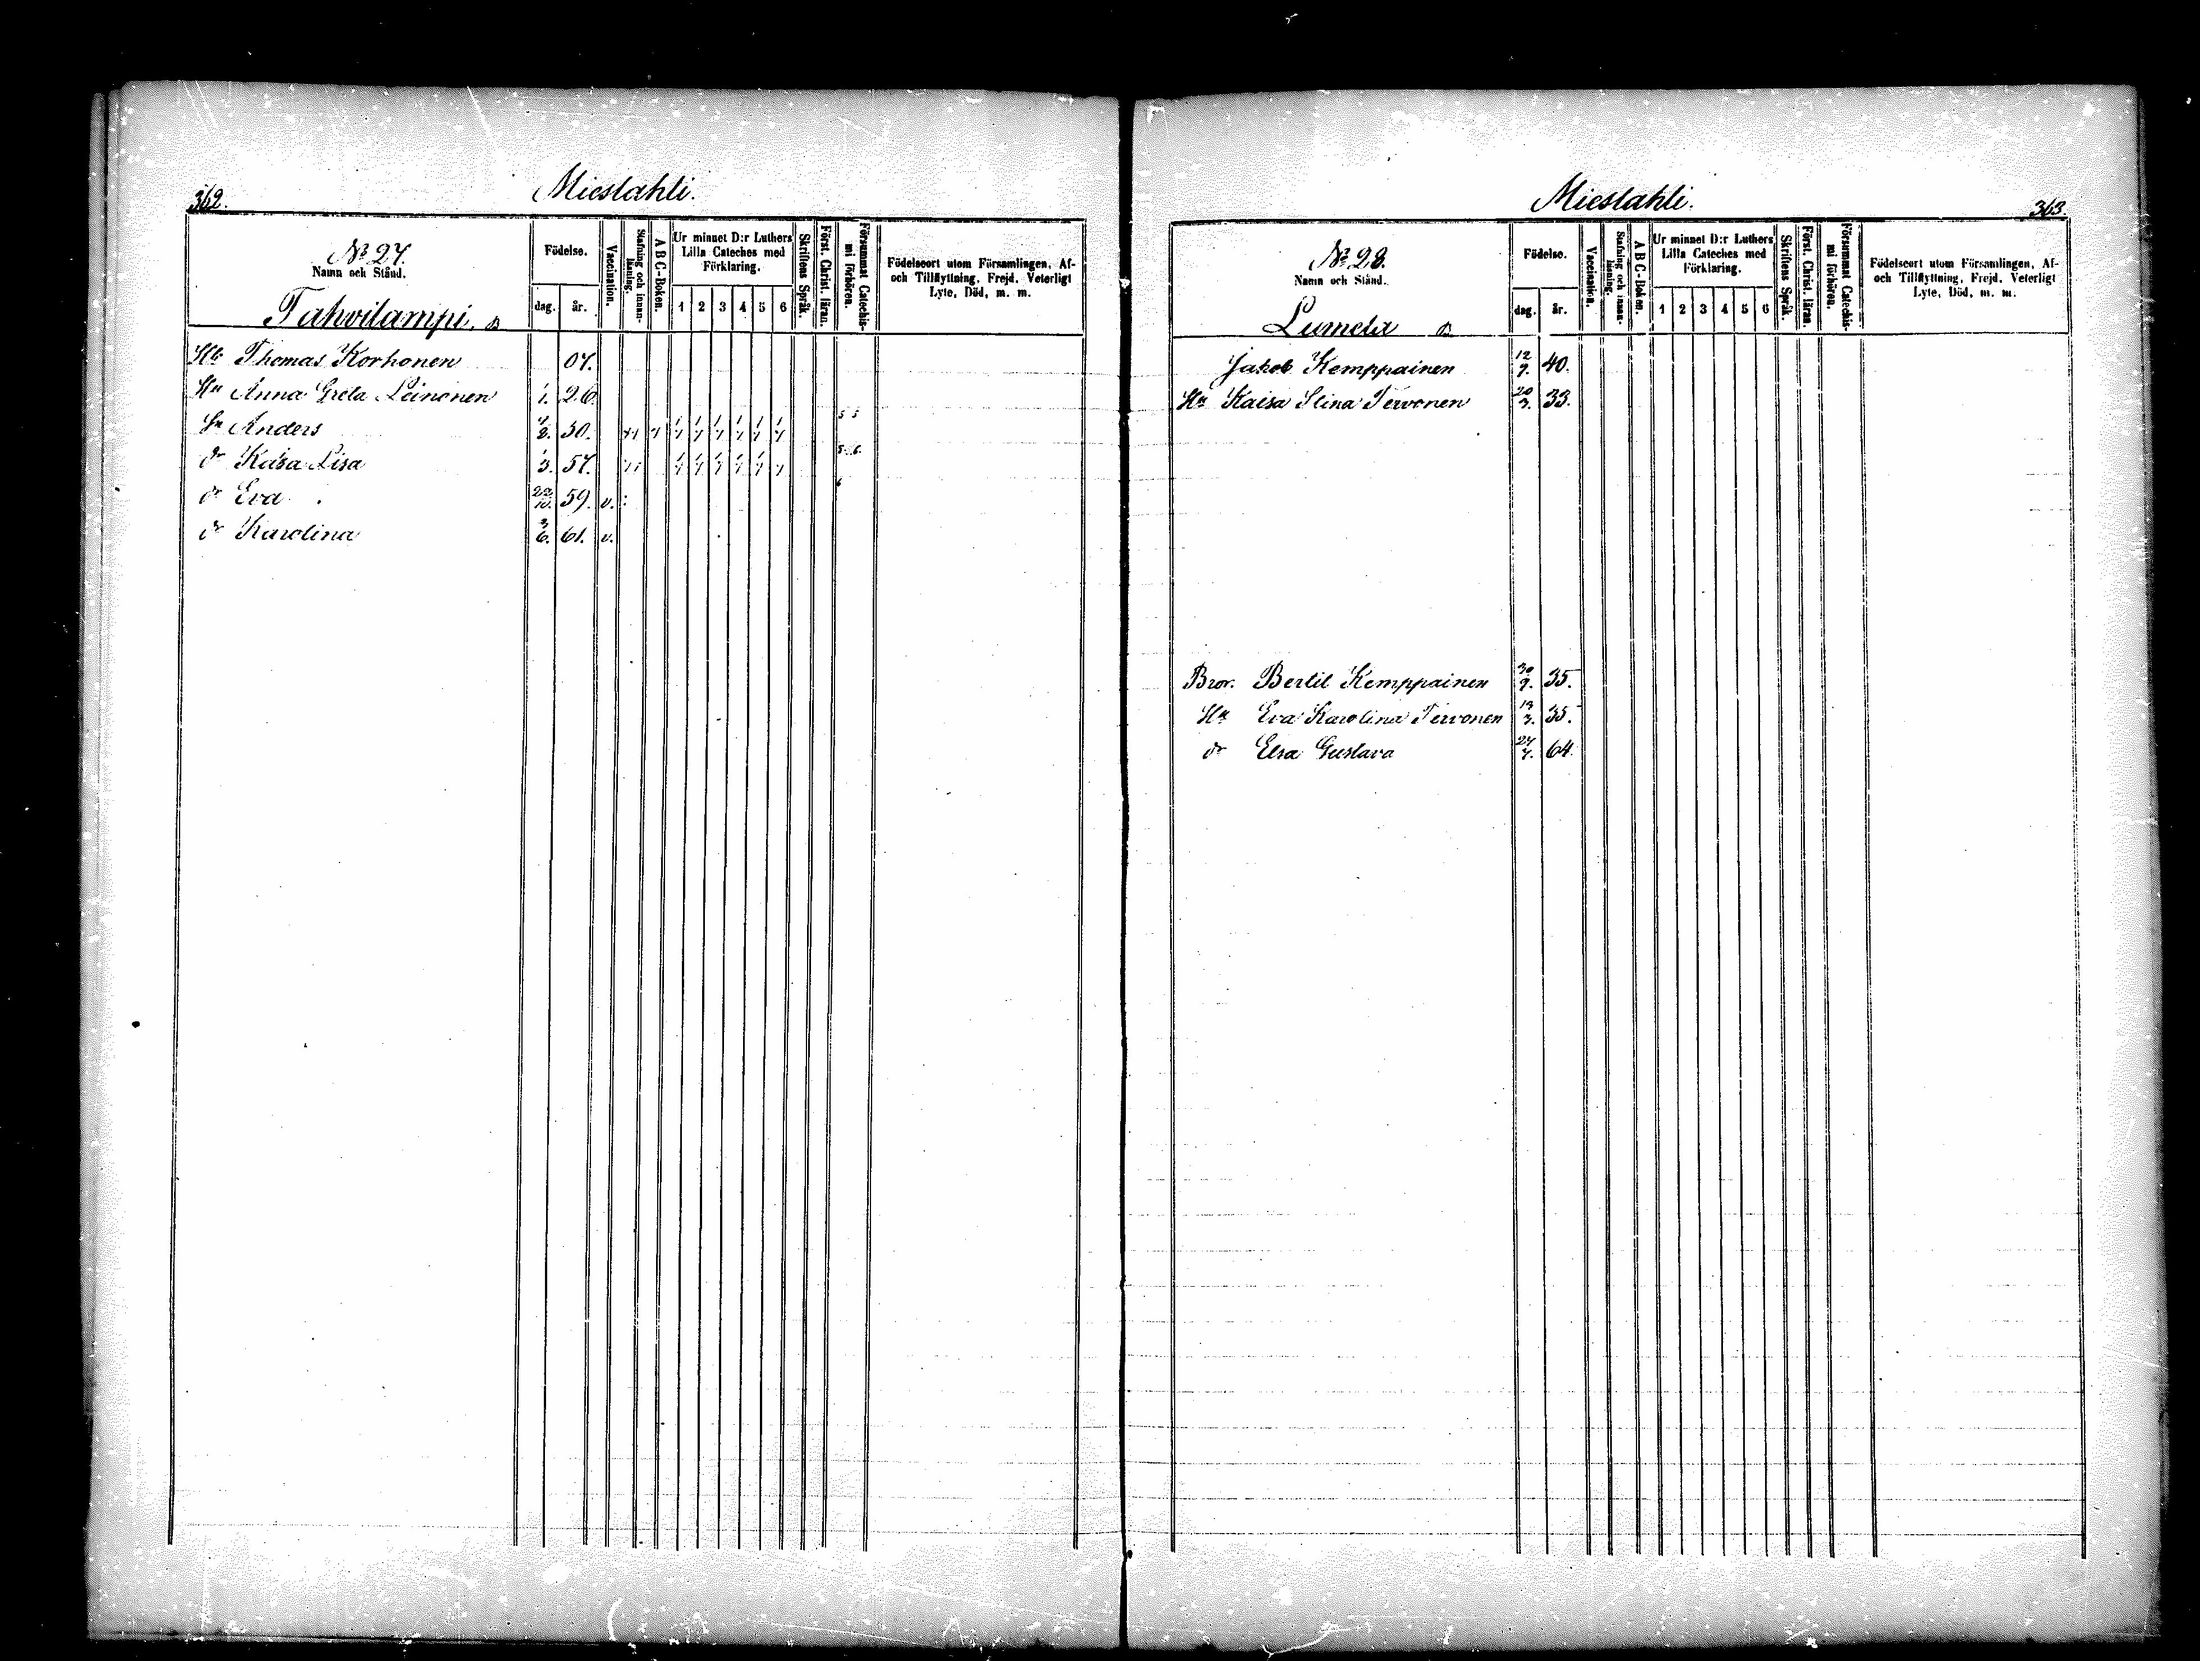 362.
Mieslahti.
No 27.
Namn och Stånd.
Tahvilampi.
Födelse.
dag. år.
Vaccination.
Stafning och innanläsning.
A B C-Boken.
Ur minnet D:r Luthers
Lilla Cateches med
Förklaring.
1 2 3 4 5 6
Skriftens Språk.
Först. Christ. läran.
Försummat Catechismi förhören.
Födelseort utom Församlingen, Af-
och Tillflyttning, Frejd, Veterligt
Lyte, Död, m. m.
Hb Thomas Korhonen 07.
Hu Anna Greta Leinonen 1. 26.
Sn Anders 30. 5 5
dr Kaisa Lisa 1/3. 57. 5. 6.
dr Eva 22/10. 59. v. 6
dr Karolina 3/6. 61. v.
Mieslahti.
363.
No 28.
Namn och Stånd.
Lumela
Födelse.
dag. år.
Vaccination.
Stafning och innanläsning.
A B C-Boken.
Ur minnet D:r Luthers
Lilla Cateches med
Förklaring.
1 2 3 4 5 6
Skriftens Språk.
Först. Christ. läran.
Försummat Catechismi förhören.
Födelseort utom Församlingen, Af-
och Tillflyttning, Frejd, Veterligt
Lyte, Död, m. m.
Jakob Kemppainen 12/9. 40.
Hu Kaisa Stina Tervonen 20/3. 33.
Bror. Bertil Kemppainen 30/9. 35.
Hu Eva Karolina Tervonen 19/3. 35.
dr Elsa Gustava 27/7. 64.